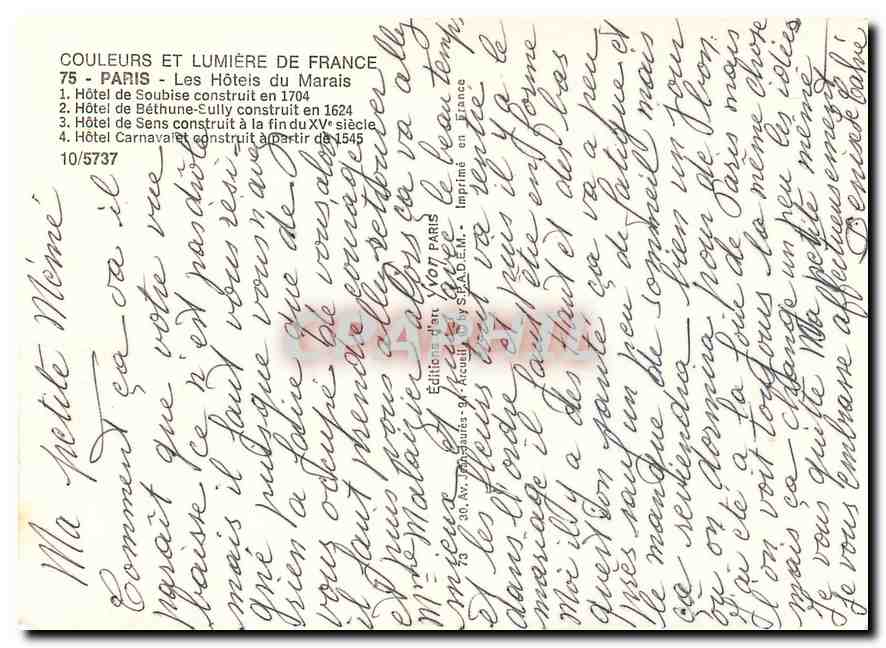 COULEURS ET LUMIÈRE DE FRANCE
75 - PARIS - Les Hôtels du Marais
1. Hôtel de Soubise construit en 1704
2. Hôtel de Béthune-Sully construit en 1624
3. Hôtel de Sens construit à la fin du XVe siècle
4. Hôtel Carnavalet construit à partir de 1545
10/5737
Editions d'art YVON PARIS
73 30, Av. Jean-Jaurès - 94 - Arcueil by S.P.A.D.E.M. - Imprimé en France
CPAPHIL
Ma petite Mémé
Comment ça va il
parait que votre vue
baisse ce n'est pas drôle
mais il faut vous rési-
gné puisque vous n'avez
rien a faire que de
vous occupé de vous alors
il faut prendre courage
et puis vous allez retrouver
Mme Malaizier alors ça va
mieux et puis avec le beau temps
et les fleurs tout va rentré
dans l'ordre puis il y a le
mariage il faut être en forme
moi il y a des haut et des bas
question santé ça va a peu
près sauf un peu de fatigue et
le manque de sommeil mais
ça reviendra bien un jour
ou on dormira pour de bon.
J'ai été a la foire de Paris mais
l'on voit toujours la même chose
mais ça change un peu les idées
Je vous quitte Ma petite mémé
Je vous embrasse affectueusement
Denise